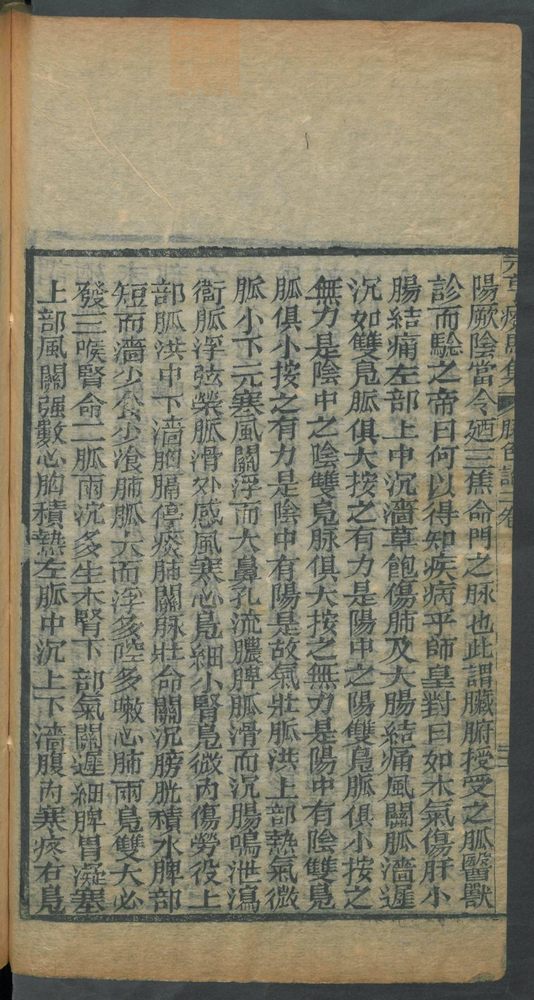 元亨療馬集 脉色論 二卷 三
陽厥陰當令廼三焦命門之脉也此謂臟腑授受之脈醫獸
診而騐之帝曰何以得知疾病乎師皇對曰如木氣傷肝小
腸結痛左部上中沉濇草飽傷肺及大腸結痛風關脈濇遲
沉如雙鳧脈俱大按之有力是陽中之陽雙鳧脈俱小按之
無力是陰中之陰雙鳧脉俱大按之無力是陽中有陰雙鳧
脈俱小按之有力是陰中有陽是故氣壯脈洪上部熱氣微
脈小下元寒風關浮而大鼻孔流膿脾脈滑而沉腸鳴泄瀉
衛脈浮弦榮脈滑外感風寒心鳧細小腎鳧微內傷勞役上
部脈洪中下濇胸膈停痰肺關脉壯命關沉膀胱積水脾部
短而濇少食少飡肺脈大而浮多陞多嗽心肺兩鳧雙大必
發三喉腎命二脈兩沉多生木腎下部氣關遲細脾胃凝塞
上部風關强數心胸積熱左脈中沉上下濇腹內寒疼右鳧